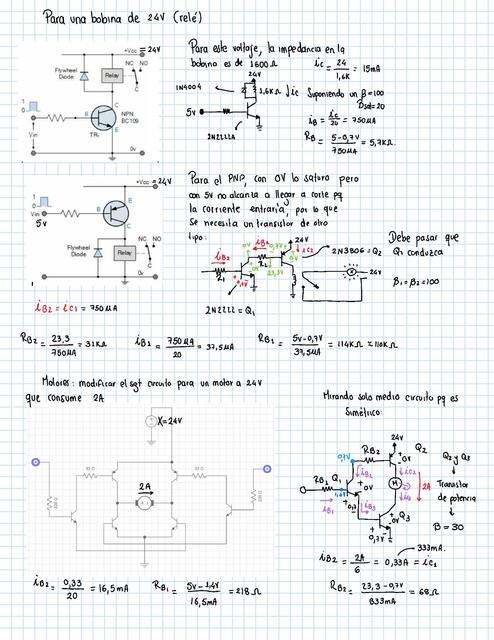 Para una bobina de 24V (relé)
+Vcc = 24V
Flywheel
Diode
Relay
NC NO
C
B
E
NPN
BC109
TR1
Vin
0v
Para este voltaje, la impedancia en la
bobina es de 1600Ω
ic = 24/1,6k = 15mA
24V
1N4004
1,6KΩ ↓ic
Suponiendo un β=100
βsat=20
5v
2N2222A
iB = ic/20 = 750μA
RB = 5-0,7V/750μA = 5,7KΩ
+Vcc = 24V
1
0
5v
E
B
C
Flywheel
Diode
Relay
NC
NO
0v
Para el PNP, con 0V lo satura pero
con 5v no alcanza a llegar a corte pq
la corriente entraría, por lo que
se necesita un transistor de otro
tipo:
24V
iB2
0,7V
0V
iC2
23,3V
2N3806 = Q2
iB1
R1
0,7V
2N2222 = Q1
24V
Debe pasar que
Q1 conduzca
β1=β2=100
iB2 = iC1 = 750μA
RB2 = 23,3/750μA = 31KΩ
iB1 = 750μA/20 = 37,5μA
RB1 = 5v-0,7V/37,5μA = 114KΩ ≈ 110KΩ
Motores: modificar el sgt circuito para un motor a 24V
que consume 2A
X=24V
2A
Mirando solo medio circuito pq es
simétrico:
24V
0,7V
RB2
Q2
0V
RB1
Q1
iB2
iC2
1,4V
iB1
0V
M
2A
0,7
iB3
Q3
0V
0,7
Q2 y Q3
Transistor
de potencia
β = 30
iB2 = 2A/6 = 0,33A = iC1
333mA
iB2 = 0,33/20 = 16,5mA
RB1 = 5v-1,4V/16,5mA = 218Ω
RB2 = 23,3-0,7V/333mA = 68Ω